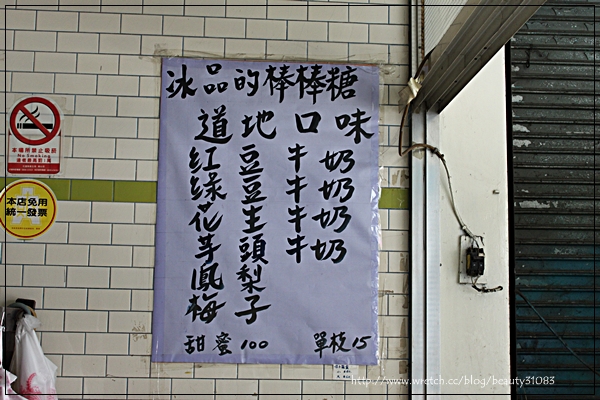 冰品的棒棒糖
道地口味
紅豆牛奶
綠豆牛奶
花生牛奶
芋頭牛奶
鳳梨
梅子
甜蜜100 單枝15
本場所禁止吸菸
No Smoking
本店免用
統一發票
http://www.wretch.cc/blog/beauty31083